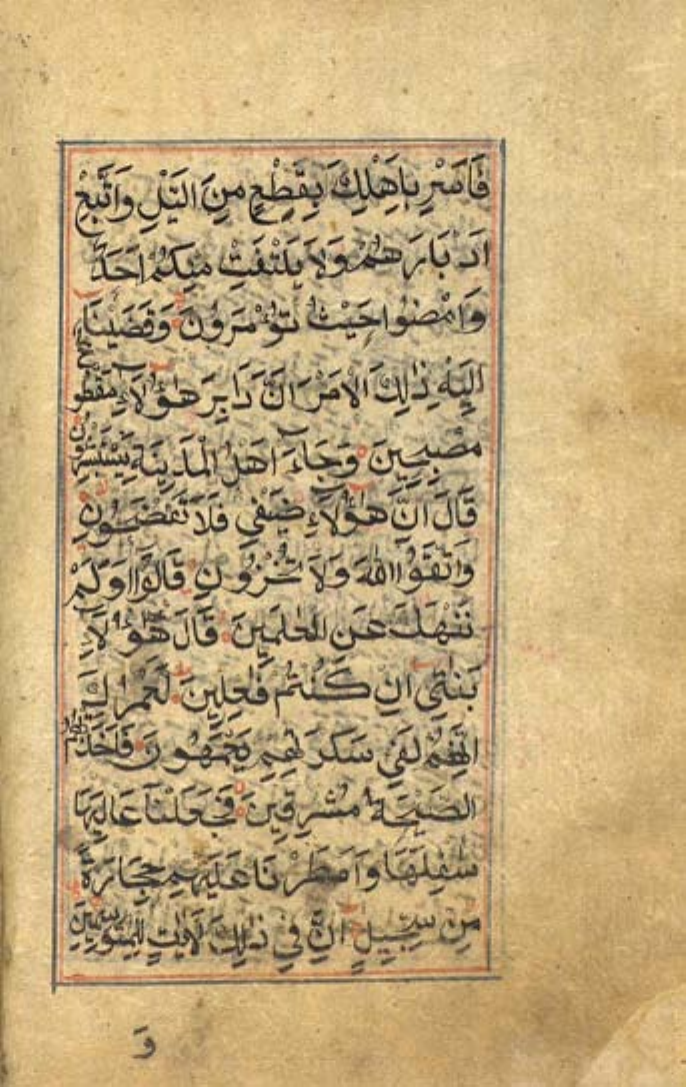 فَاَسْرِ بِاَهْلِكَ بِقِطْعٍ مِنَ الَّيْلِ وَاتَّبِعْ
اَدْبَارَهُمْ وَلَا يَلْتَفِتْ مِنْكُمْ اَحَدٌ
وَامْضُوا حَيْثُ تُؤْمَرُونَ وَقَضَيْنَا
اِلَيْهِ ذٰلِكَ الْاَمْرَ اَنَّ دَابِرَ هٰؤُلَاۤءِ مَقْطُوعٌ
مُصْبِحِينَ وَجَاۤءَ اَهْلُ الْمَدِينَةِ يَسْتَبْشِرُونَ
قَالَ اِنَّ هٰؤُلَاۤءِ ضَيْفِي فَلَا تَفْضَحُونِ
وَاتَّقُوا اللّٰهَ وَلَا تُخْزُونِ قَالُوۤا اَوَلَمْ
نَنْهَكَ عَنِ الْعٰلَمِينَ قَالَ هٰؤُلَاۤءِ
بَنٰتِي اِنْ كُنْتُمْ فٰعِلِينَ لَعَمْرُكَ
اِنَّهُمْ لَفِي سَكْرَتِهِمْ يَعْمَهُونَ فَاَخَذَتْهُمُ
الصَّيْحَةُ مُشْرِقِينَ فَجَعَلْنَا عَالِيَهَا
سَافِلَهَا وَاَمْطَرْنَا عَلَيْهِمْ حِجَارَةً
مِنْ سِجِّيلٍ اِنَّ فِي ذٰلِكَ لَاٰيٰتٍ لِلْمُتَوَسِّمِينَ
وَ